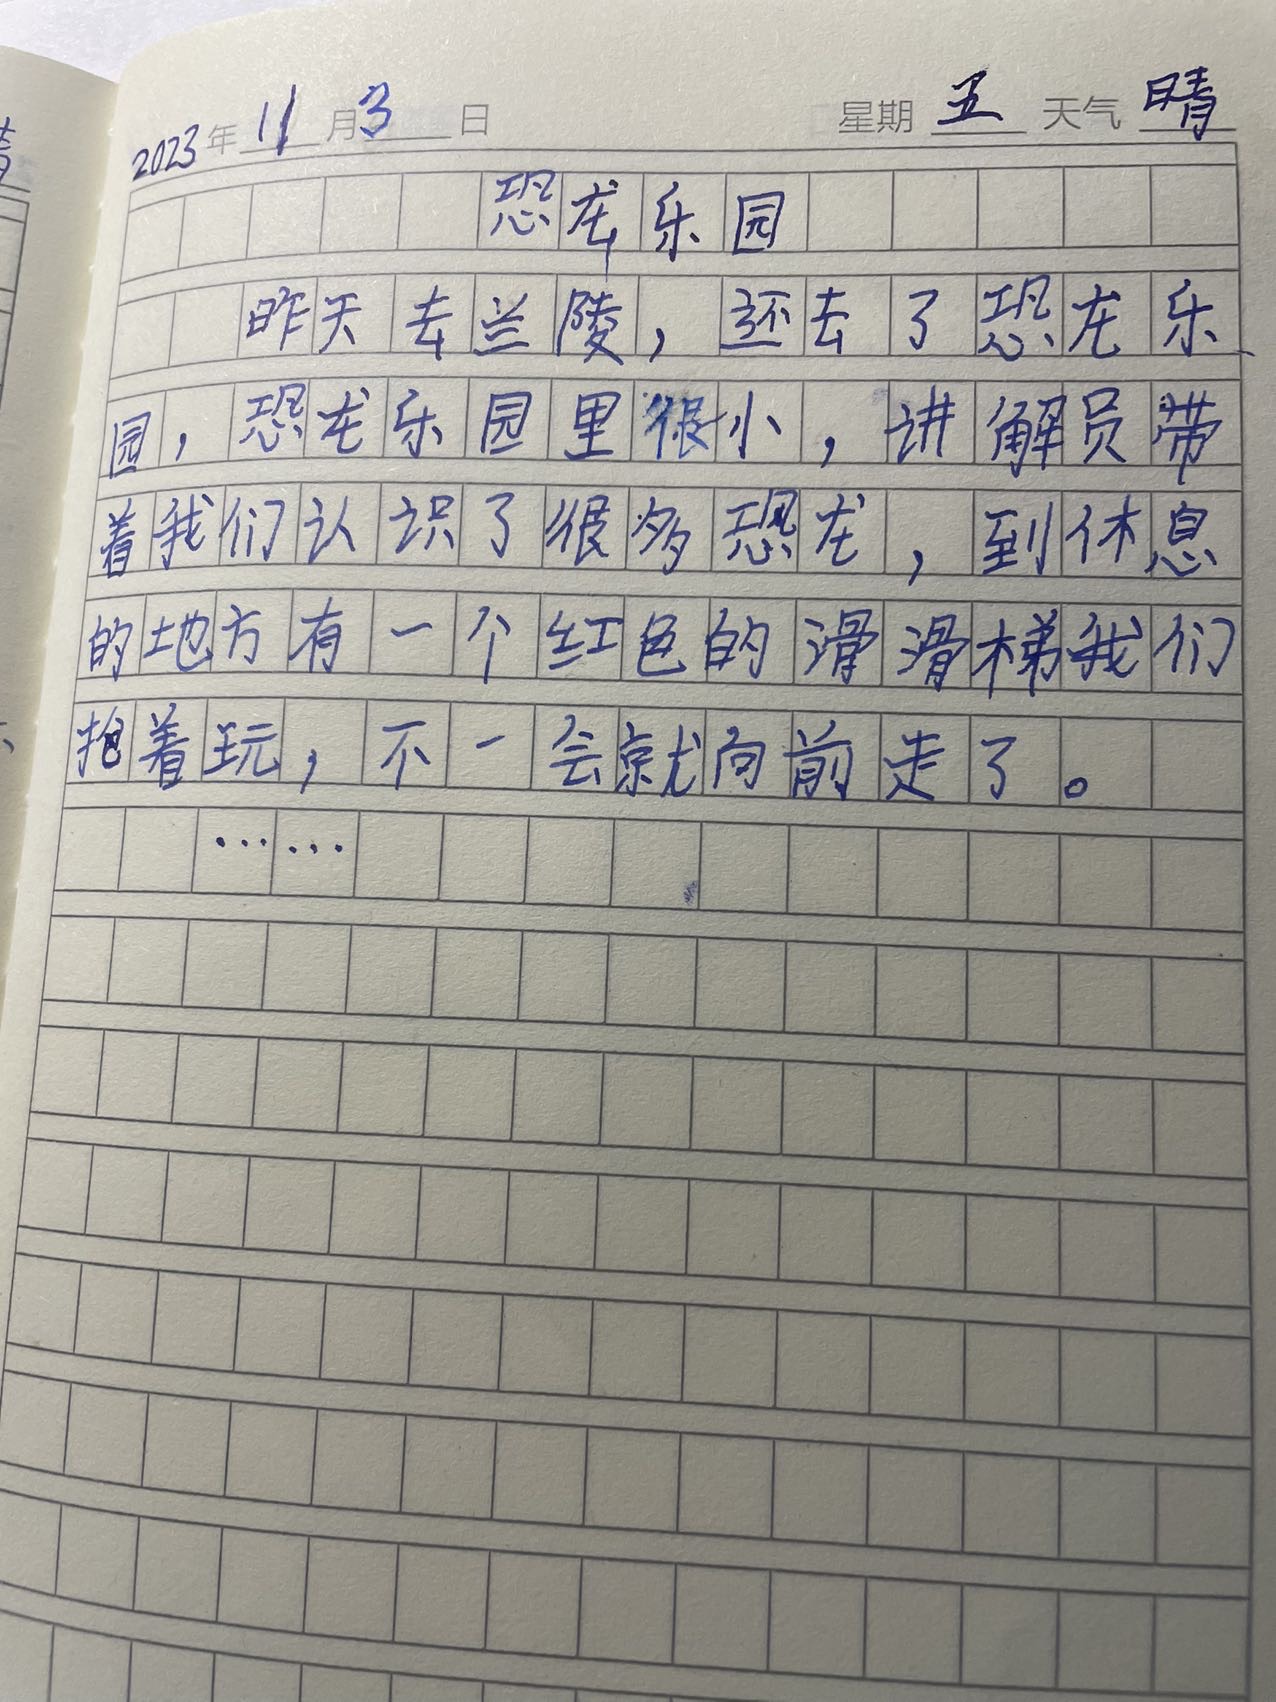 2023年11月3日 星期五 天气晴
恐龙乐园
昨天去兰陵，还去了恐龙乐
园，恐龙乐园里很小，讲解员带
着我们认识了很多恐龙，到休息
的地方有一个红色的滑滑梯我们
抢着玩，不一会就向前走了。
……